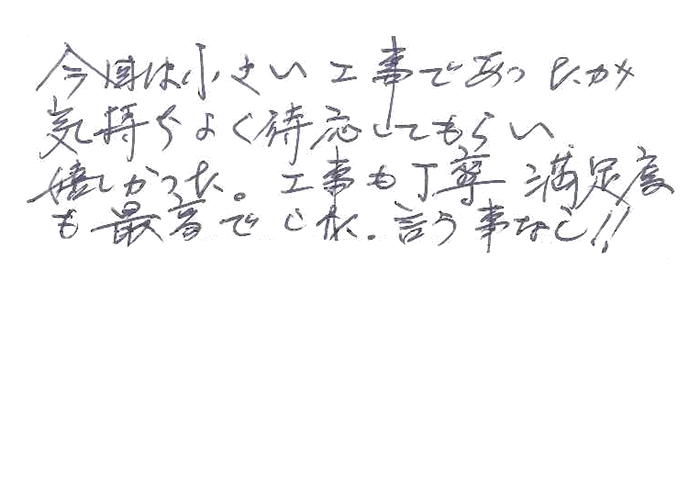 今回は小さい工事であったが
気持ちよく待応してもらい
嬉しかった。工事も丁寧 満足度
も最高でした。言う事なし!!